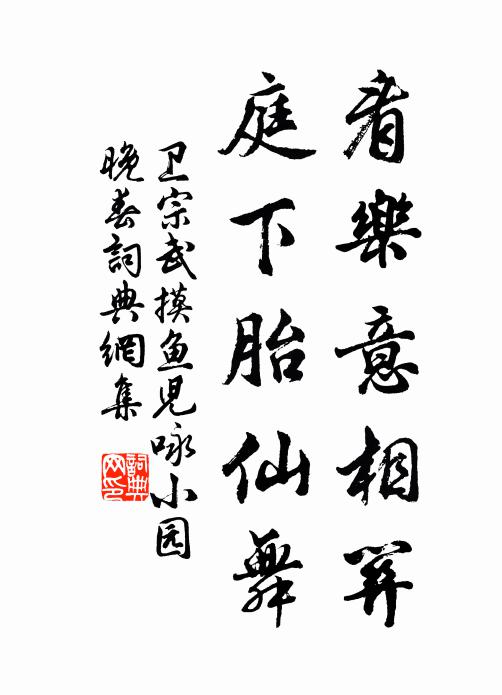 看樂意相関
庭下胎仙舞
卫宗武摸鱼児咏小园
晚春詞典網集
詞典
网印